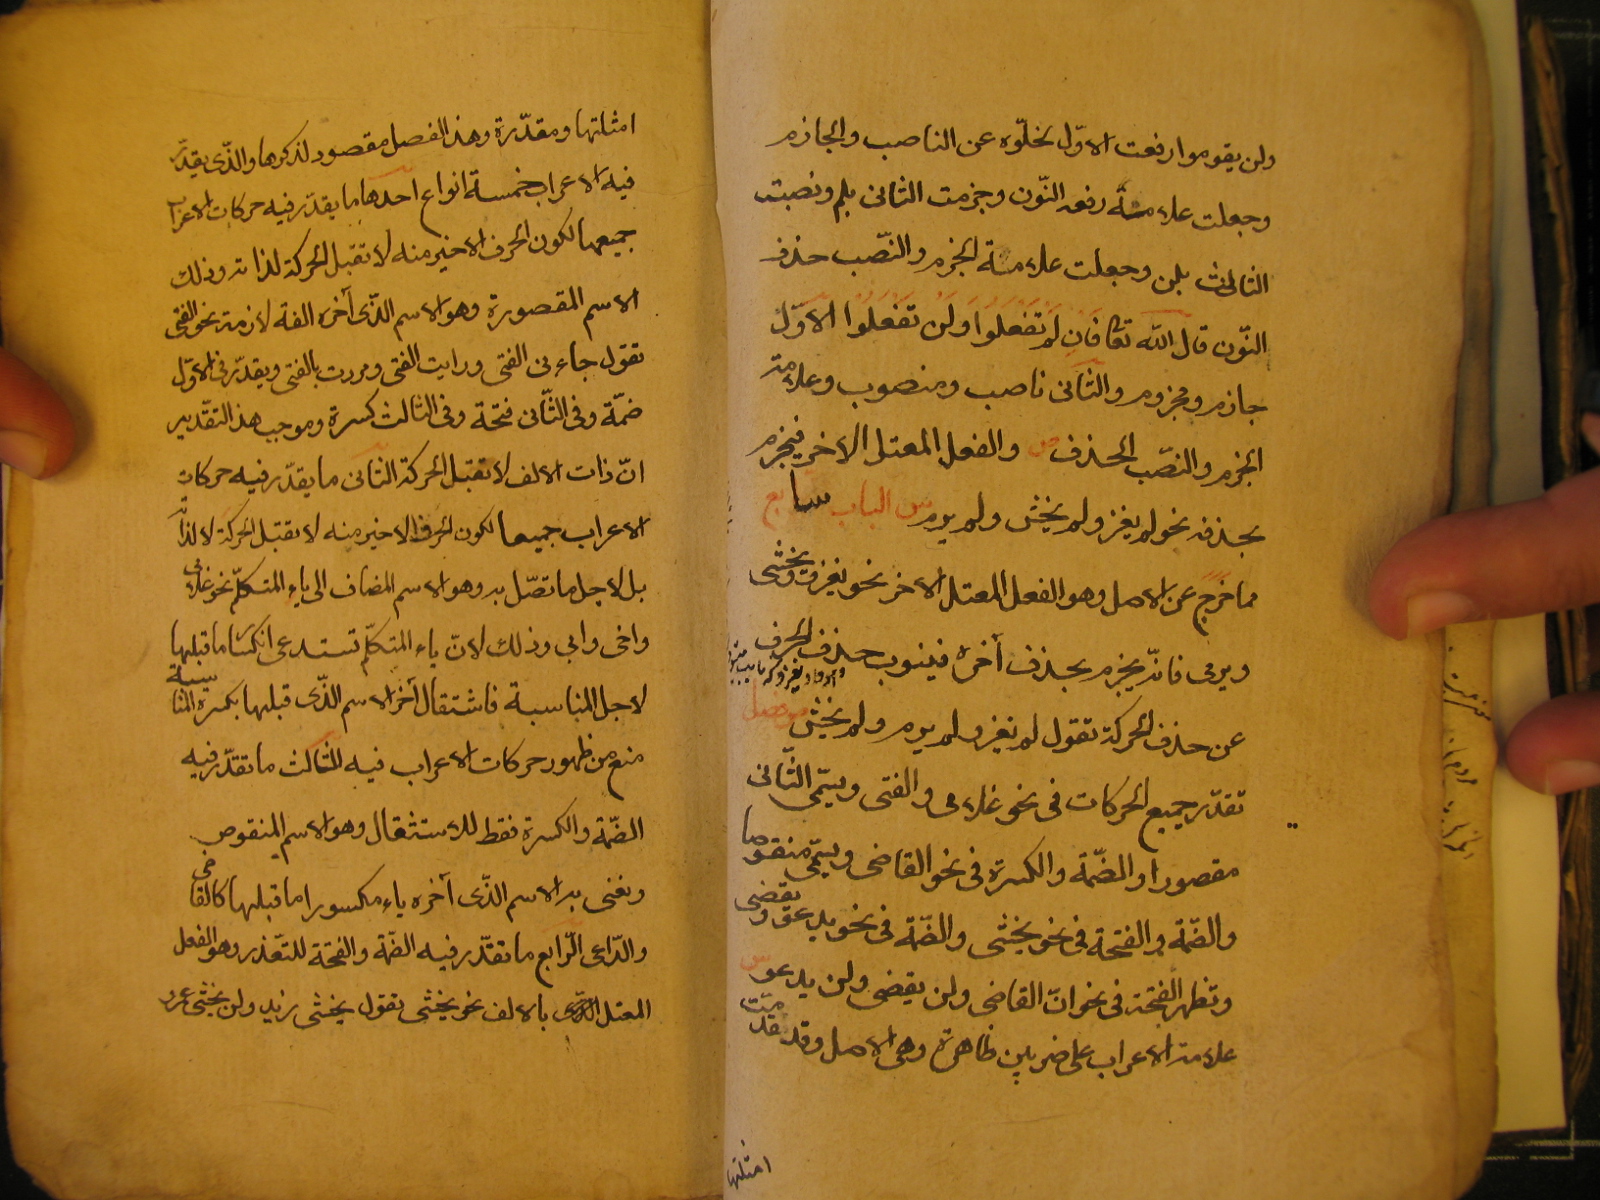 ولن يقوموا رفعت الاوّل لخلّوه عن الناصب والجازم
وجعلت علامة رفعه النّون وجزمت الثانى بلم ونصبت
الثالث بلن وجعلت علامة الجزم والنّصب حذف
النّون قال اللّه تعا فان لم تفعلوا ولن تفعلوا الاوّل
جازم ومجزوم والثانى ناصب ومنصوب وعلامة
الجزم والنّصب الحذف ص والفعل المعتل الاخر فيجزم
بحذفه نحو لم يغز ولم يخش ولم يرم ش الباب سابع
مما خرج عن الاصل وهو الفعل المعتل الاخر نحو يغزو ويخشى
ويرمى فانّه يجزم بحذف آخره فينوب حذف الحرف
عن حذف الحركة تقول لم يغز ولم يرم ولم يخش ص فصل
تقدّر جميع الحركات فى نحو غلامى والفتى ويسمّى الثّانى
مقصورا والضمّة والكسرة فى نحو القاضى ويسمّى منقوصا
والضّمة والفتحة فى نحو يخشى والضّمة فى نحو يدعو ويقضى
وتظهر الفتحة فى نحو انّ القاضى ولن يقضى ولن يدعو ش
علامة الاعراب على ضربين ظاهرة وهى الاصل وقد تقدّمت
امثلتها
امثلتها ومقدّرة وهذا الفصل مقصود لذكرها والذّى يقدّر
فيه الاعراب خمسة انواع احدها ما يقدّر فيه حركات الاعراب
جميعها لكون الحرف الاخير منه لا تقبل الحركة لذاته وذلك
الاسم المقصورة وهو الاسم الذّى آخره الفة لازمة نحو الفتى
تقول جاءنى الفتى ورايت الفتى ومررت بالفتى ويقدّر فى الاوّل
ضمّة وفى الثّانى فتحة وفى الثالث كسرة وموجب هذا التقّدير
انّ ذات الالف لا تقبل الحركة الثانى ما يقدّر فيه حركات
الاعراب جميعا لكون الحرف الاخير منه لا يقبل الحركة لا لذاته
بل لاجل ما تصّل به وهو الاسم المضاف الى ياء المتكلّم نحو غلامى
واخى وابى وذلك لانّ ياء المتكلّم تستدعى انكسار ما قبلها
لاجل المناسبة فاشتقال آخر الاسم الذّى قبلها بكسرة المناسبة
منع من ظهور حركات الاعراب فيه الثالث ما تقدّر فيه
الضّمة والكسرة فقط للاستثقال وهو الاسم المنقوص
ونعنى به الاسم الذّى آخره ياء مكسورا ما قبلها كالقاضى
والدّاعى الرّابع ما تقدّر فيه الضّمة والفتحة للتّعذر وهو الفعل
المعتل بالالف نحو يخشى تقول يخشى زيد ولن يخشى عمرو